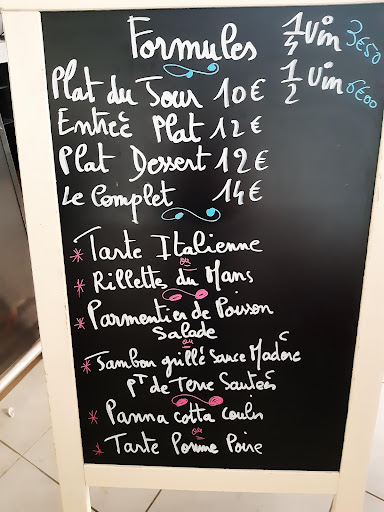 Formules
1/4 Vin 3€50
1/2 Vin 6€00
Plat du Jour 10€
Entreé Plat 12€
Plat Dessert 12€
Le Complet 14€
* Tarte Italienne
ou
* Rillettes du Mans
* Parmentier de Poisson
Salade
ou
* Jambon grillé Sauce Madère
PT de Terre Sauteés
* Panna cotta coulis
ou
* Tarte Pomme Poire